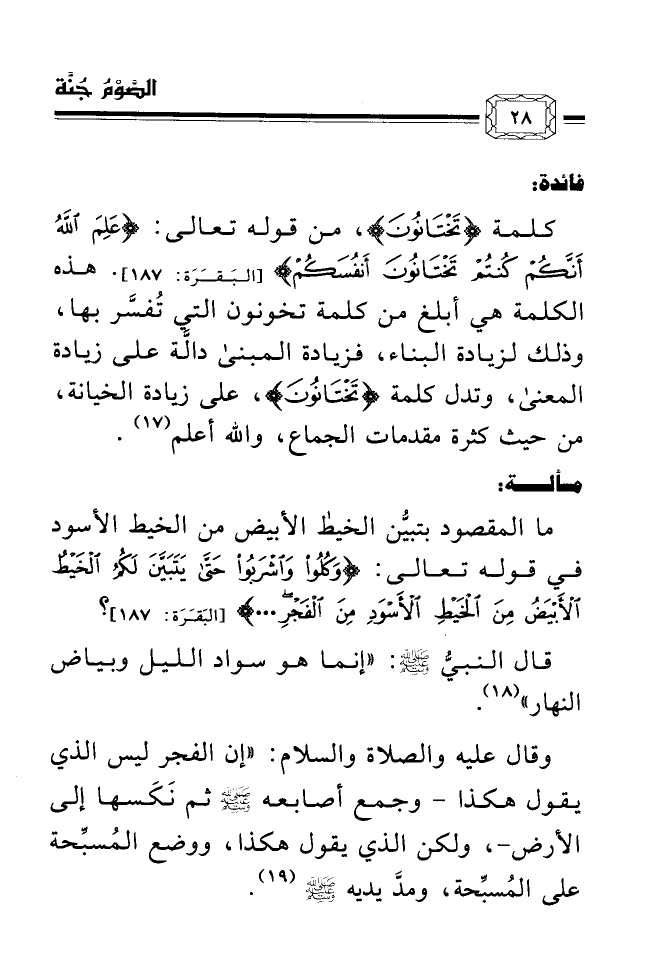 الصَّوْمُ جُنَّة
٢٨
فائدة:
كلمة ﴿تَخْتَانُونَ﴾، من قوله تعالى: ﴿عَلِمَ اللَّهُ
أَنَّكُمْ كُنتُمْ تَخْتَانُونَ أَنفُسَكُمْ﴾ [البَقَرَة: ١٨٧]. هذه
الكلمة هي أبلغ من كلمة تخونون التي تُفسَّر بها،
وذلك لزيادة البناء، فزيادة المبنىٰ دالَّة على زيادة
المعنىٰ، وتدل كلمة ﴿تَخْتَانُونَ﴾، على زيادة الخيانة،
من حيث كثرة مقدمات الجماع، والله أعلم(١٧).
مسألة:
ما المقصود بتبيُّن الخيط الأبيض من الخيط الأسود
في قوله تعالى: ﴿وَكُلُوا۟ وَٱشْرَبُوا۟ حَتَّىٰ يَتَبَيَّنَ لَكُمُ ٱلْخَيْطُ
ٱلْأَبْيَضُ مِنَ ٱلْخَيْطِ ٱلْأَسْوَدِ مِنَ ٱلْفَجْرِۖ ...﴾ [البَقَرَة: ١٨٧]؟
قال النبيُّ ﷺ: «إنما هو سواد الليل وبياض
النهار»(١٨).
وقال عليه والصلاة والسلام: «إن الفجر ليس الذي
يقول هكذا - وجمع أصابعه ﷺ ثم نَكَسها إلى
الأرض-، ولكن الذي يقول هكذا، ووضع المُسبِّحة
على المُسبِّحة، ومدَّ يديه ﷺ (١٩).